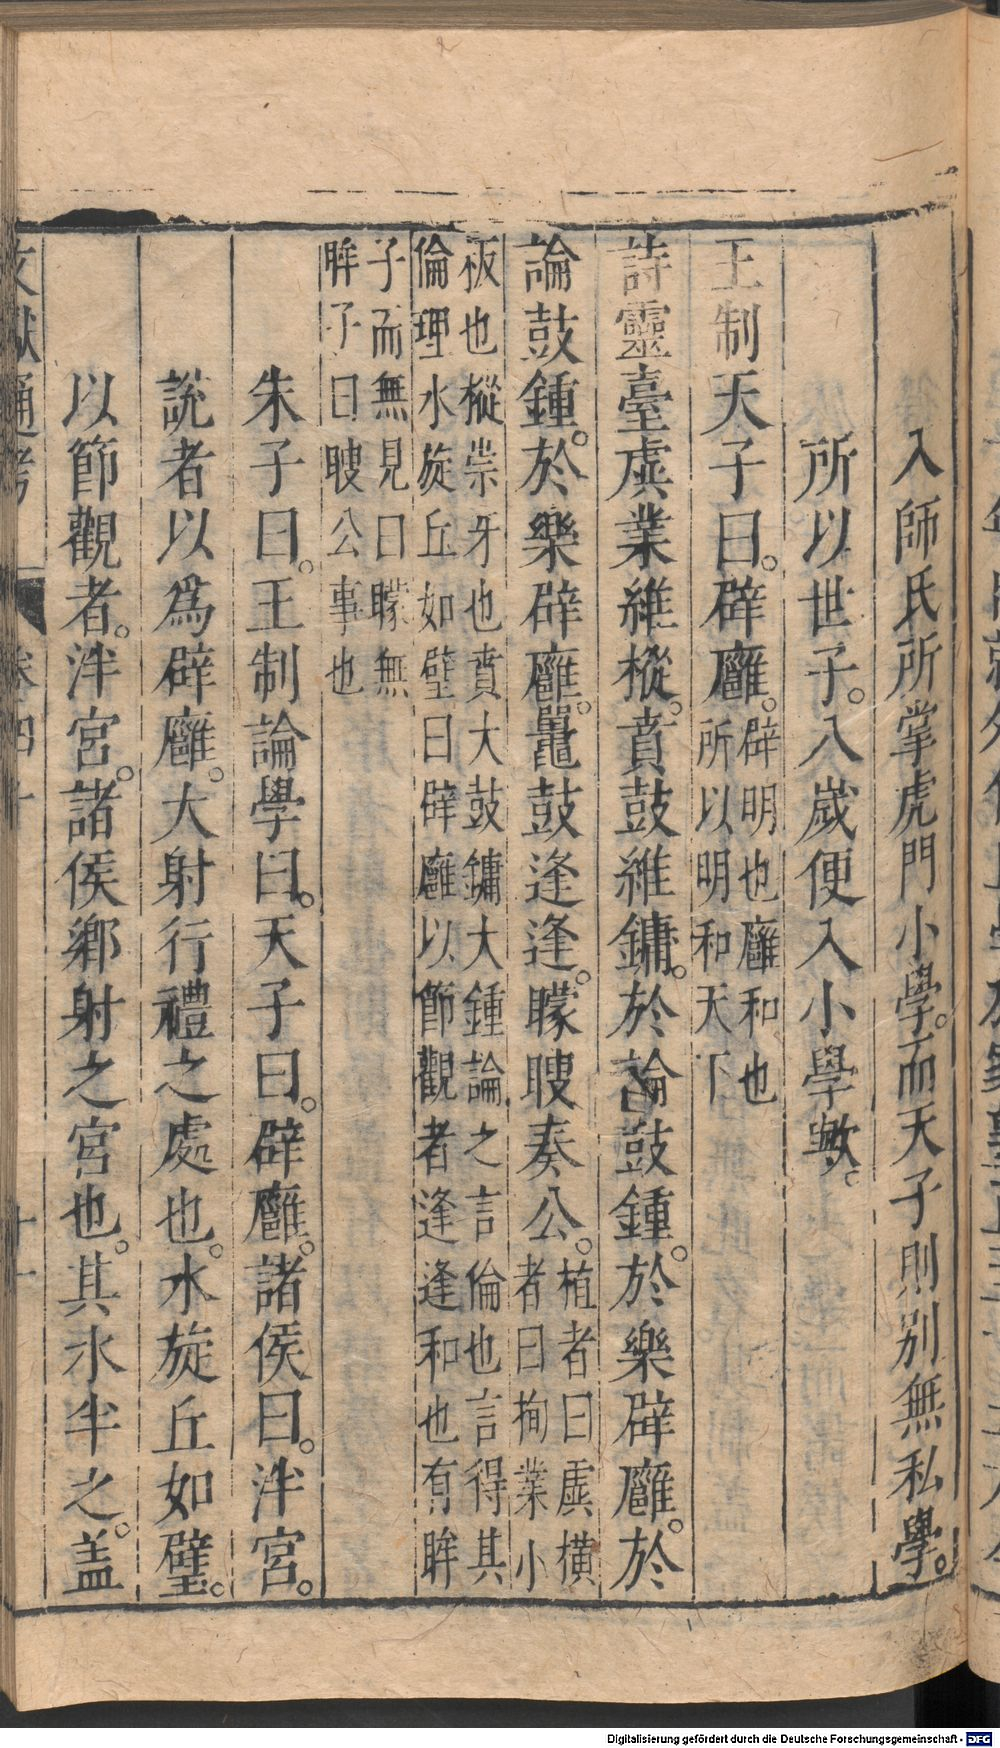 入師氏所掌虎門小學。而天子則別無私學。
所以世子。八歲便入小學歟。
王制天子曰。辟廱。辟明也廱和也
所以明和天下
詩靈臺虡業維樅。賁鼓維鏞。於論鼓鍾。於樂辟廱。於
論鼓鍾。於樂辟廱。鼉鼓逢逢。矇瞍奏公。植者曰虡橫
者曰栒業小
板也樅崇牙也賁大鼓鏞大鍾論之言倫也言得其
倫理水旋丘如璧曰辟廱以節觀者逢逢和也有眸
子而無見曰矇無
眸子曰瞍公事也
朱子曰。王制論學曰。天子曰。辟廱。諸侯曰。泮宮。
說者以爲辟廱。大射行禮之處也。水旋丘如璧。
以節觀者。泮宮。諸侯鄉射之宮也。其水半之。盖
文獻通考 卷四十 十一
Digitalisierung gefördert durch die Deutsche Forschungsgemeinschaft - DFG